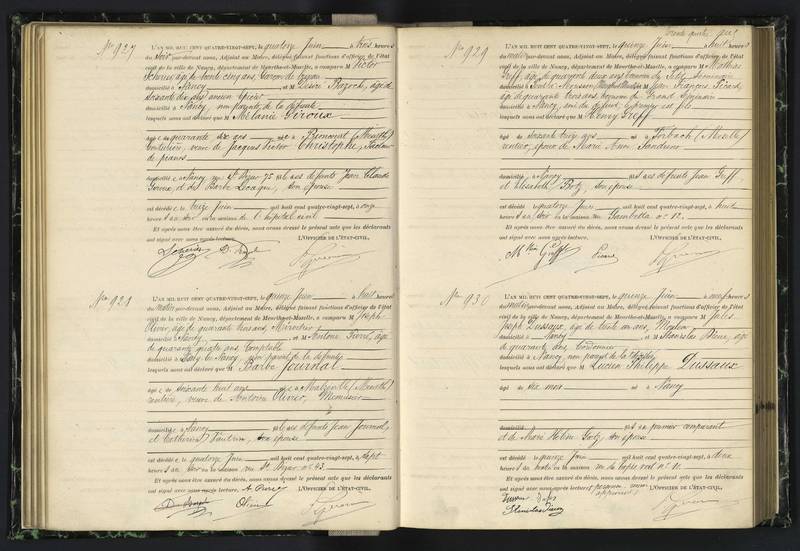 No 927
L'AN MIL HUIT CENT QUATRE-VINGT-SEPT, le quatorze Juin à trois heures
du soir par-devant nous, Adjoint au Maire, délégué faisant fonctions d'officier de l'état
civil de la ville de Nancy, département de Meurthe-et-Moselle, a comparu M Victor
âgé de trente cinq ans, Garçon de bureau
domicilié à Nancy et M Désiré Bazoch, âgé de
soixante dix ans ancien épicier
domicilié à Nancy, non parents de la défunte
lesquels nous ont déclaré que M Mélanie Géroux
âgée de quarante six ans née à (Meurthe)
Couturière, veuve de Jacques Victor Christophe, facteur
de pianos
domiciliée à Nancy rue St Dizier 75 fille des défunts Jean Claude
Géroux, et de Barbe son épouse
est décédée le treize Juin mil huit cent quatre-vingt-sept, à onze
heures du soir en la maison de l'hôpital civil
Et après nous être assuré du décès, nous avons dressé le présent acte que les déclarants
ont signé avec nous après lecture. L'OFFICIER DE L'ÉTAT-CIVIL,
No 928
L'AN MIL HUIT CENT QUATRE-VINGT-SEPT, le quinze Juin à huit heures
du matin par-devant nous, Adjoint au Maire, délégué faisant fonctions d'officier de l'état
civil de la ville de Nancy, département de Meurthe-et-Moselle, a comparu M Joseph
Olivier, âgé de quarante trois ans, Miroitier
domicilié à Nancy et M Antoine Pierre, âgé
de quarante quatre ans, Comptable
domicilié à Nancy, non parent de la défunte
lesquels nous ont déclaré que M Barbe Journal
âgée de soixante huit ans née à (Meurthe)
rentière, veuve de Antoine Olivier, Menuisier
domiciliée à Nancy fille des défunts Jean Journal,
et Catherine Vautrin, son épouse
est décédée le quatorze Juin mil huit cent quatre-vingt-sept, à sept
heures du soir en la maison rue St Dizier no 43
Et après nous être assuré du décès, nous avons dressé le présent acte que les déclarants
ont signé avec nous après lecture. L'OFFICIER DE L'ÉTAT-CIVIL,
No 929
L'AN MIL HUIT CENT QUATRE-VINGT-SEPT, le quinze Juin à huit heures
du matin par-devant nous, Adjoint au Maire, délégué faisant fonctions d'officier de l'état
civil de la ville de Nancy, département de Meurthe-et-Moselle, a comparu M Mathias
Greff, âgé de quarante deux ans, économe du Petit Séminaire
domicilié à Pont-à-Mousson et M Jean François Pierre,
âgé de quarante trois ans, économe du Grand Séminaire
domicilié à Nancy, ami du défunt, le premier est fils
lesquels nous ont déclaré que M Henry Greff
âgé de soixante treize ans né à Forbach (Moselle)
rentier, époux de Marie Anne
domicilié à Nancy fils des défunts Jean Greff,
et Elisabeth Botz, son épouse
est décédé le quatorze Juin mil huit cent quatre-vingt-sept, à huit
heures du soir en la maison rue Gambetta no 12.
Et après nous être assuré du décès, nous avons dressé le présent acte que les déclarants
ont signé avec nous après lecture. L'OFFICIER DE L'ÉTAT-CIVIL,
No 930
L'AN MIL HUIT CENT QUATRE-VINGT-SEPT, le quinze Juin à neuf heures
du matin par-devant nous, Adjoint au Maire, délégué faisant fonctions d'officier de l'état
civil de la ville de Nancy, département de Meurthe-et-Moselle, a comparu M Jules
Joseph Dussaux, âgé de trente un ans, Mouleur
domicilié à Nancy et M Stanislas
de quarante ans, Cordonnier
domicilié à Nancy, non parent de l'enfant
lesquels nous ont déclaré que M Lucien Philippe Dussaux
âgé de six mois né à Nancy
domicilié fils du premier comparant
et de Marie Hélène Goetz, son épouse
est décédé le quinze Juin mil huit cent quatre-vingt-sept, à deux
heures du matin en la maison rue
Et après nous être assuré du décès, nous avons dressé le présent acte que les déclarants
ont signé avec nous après lecture. L'OFFICIER DE L'ÉTAT-CIVIL,